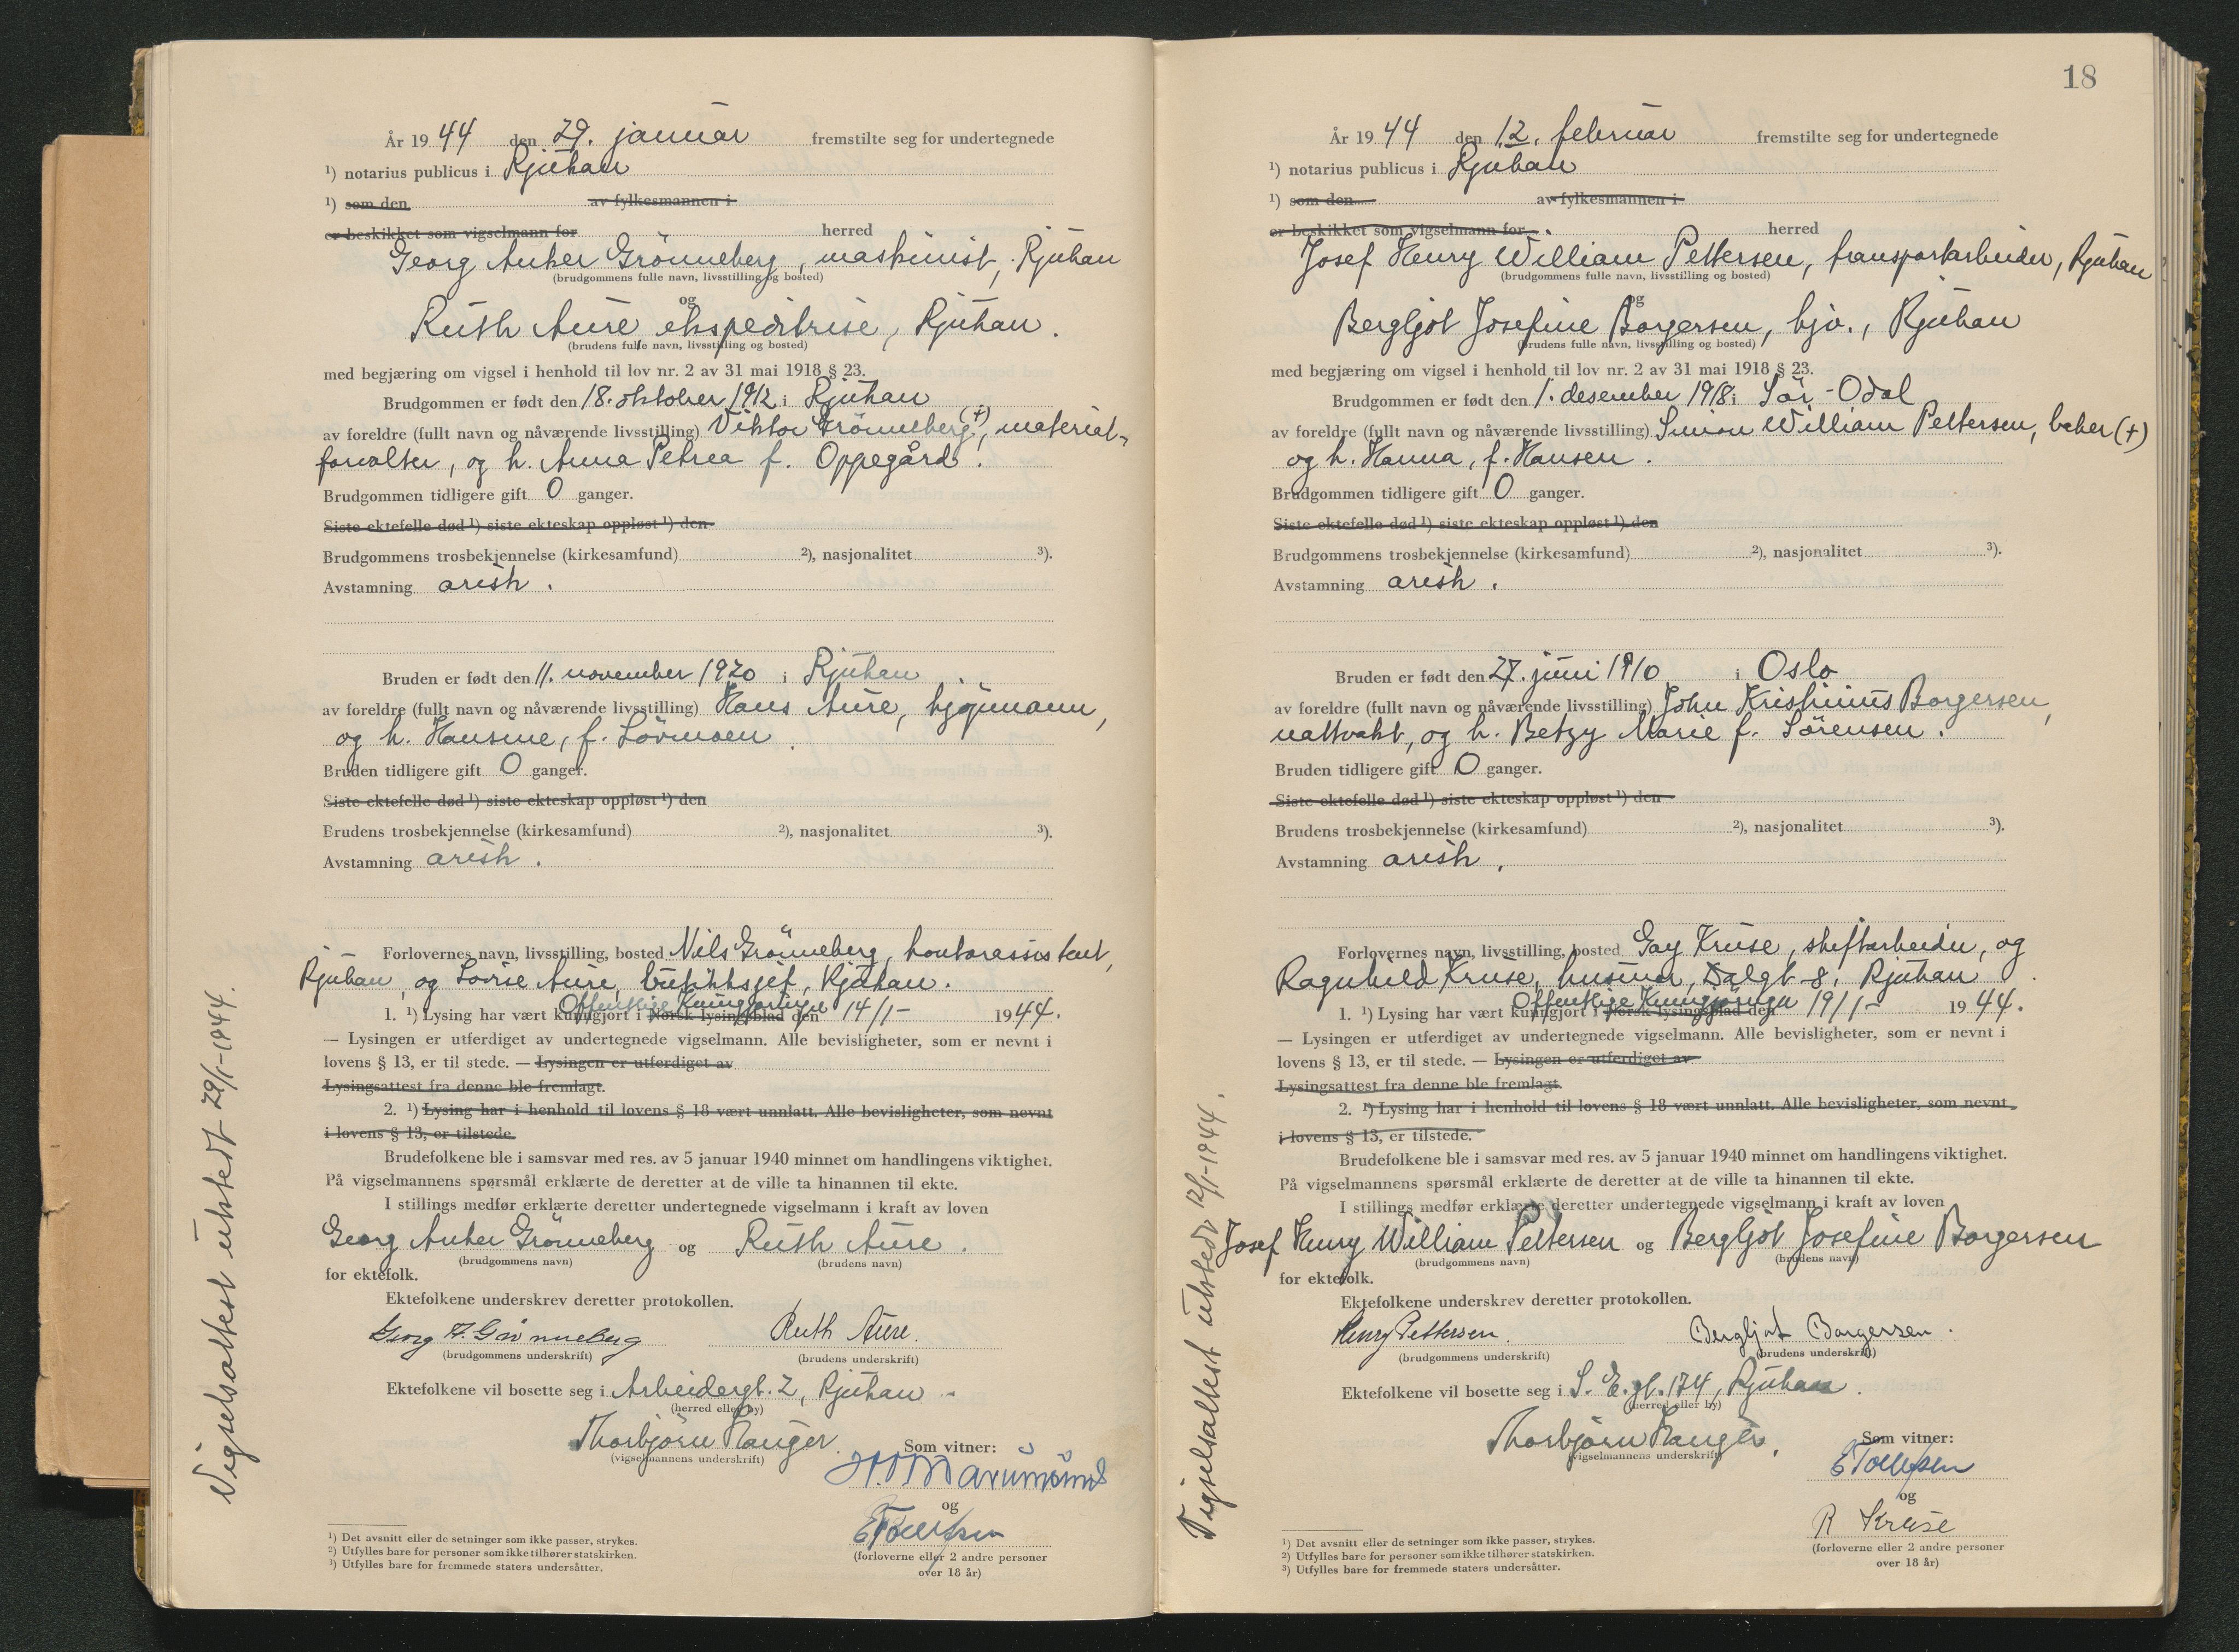 År 1944 den 29. januar fremstilte seg for undertegnede
¹) notarius publicus i Rjukan
¹) som den av fylkesmannen i
er beskikket som vigselmann for herred
Georg Anker Grönneberg, maskinist, Rjukan
(brudgommens fulle navn, livsstilling og bosted)
og
Ruth Aure ekspeditrise, Rjukan.
(brudens fulle navn, livsstilling og bosted)
med begjæring om vigsel i henhold til lov nr. 2 av 31 mai 1918 § 23.
Brudgommen er født den 18. oktober 1912 i Rjukan
av foreldre (fullt navn og nåværende livsstilling) Viktor Grönneberg (+), material-
forvalter, og h. Anna Petrea f. Oppegård.
Brudgommen tidligere gift 0 ganger.
Siste ektefelle død ¹) siste ekteskap oppløst ¹) den
Brudgommens trosbekjennelse (kirkesamfund) ²), nasjonalitet ³).
Avstamning arisk.
Bruden er født den 11. november 1920 i Rjukan.
av foreldre (fullt navn og nåværende livsstilling) Hans Aure,
og h. Hansine, f. Lövmoen.
Bruden tidligere gift 0 ganger.
Siste ektefelle død ¹) siste ekteskap oppløst ¹) den
Brudens trosbekjennelse (kirkesamfund) ²), nasjonalitet ³).
Avstamning arisk.
Forlovernes navn, livsstilling, bosted Nils Grönneberg, kontorassistent,
Rjukan, og Lovise Aure, butikksjef, Rjukan.
Offentlige Kunngjöringer
1. ¹) Lysing har vært kunngjort i Norsk lysingsblad den 14/1- 1944.
— Lysingen er utferdiget av undertegnede vigselmann. Alle bevisligheter, som er nevnt i
lovens § 13, er til stede. — Lysingen er utferdiget av
Lysingsattest fra denne ble fremlagt.
2. ¹) Lysing har i henhold til lovens § 18 vært unnlatt. Alle bevisligheter, som nevnt
i lovens § 13, er tilstede.
Brudefolkene ble i samsvar med res. av 5 januar 1940 minnet om handlingens viktighet.
På vigselmannens spørsmål erklærte de deretter at de ville ta hinannen til ekte.
I stillings medfør erklærte deretter undertegnede vigselmann i kraft av loven
Georg Anker Grönneberg og Ruth Aure.
(brudgommens navn) (brudens navn)
for ektefolk.
Ektefolkene underskrev deretter protokollen.
Georg A. Grönneberg Ruth Aure.
(brudgommens underskrift) (brudens underskrift)
Ektefolkene vil bosette seg i Arbeidergt. 2, Rjukan
(herred eller by)
Thorbjörn Hauger.
(vigselmannens underskrift)
Som vitner:
og
E Tollefsen
(forloverne eller 2 andre personer
over 18 år)
¹) Det avsnitt eller de setninger som ikke passer, strykes.
²) Utfylles bare for personer som ikke tilhører statskirken.
³) Utfylles bare for fremmede staters undersåtter.
Vigselsattest utstedt 29/1-1944.
18
År 1944 den 12. februar fremstilte seg for undertegnede
¹) notarius publicus i Rjukan
¹) som den av fylkesmannen i
er beskikket som vigselmann for herred
Josef Henry William Pettersen, transportarbeider, Rjukan
(brudgommens fulle navn, livsstilling og bosted)
og
Bergljot Josefine Borgersen, hjv., Rjukan
(brudens fulle navn, livsstilling og bosted)
med begjæring om vigsel i henhold til lov nr. 2 av 31 mai 1918 § 23.
Brudgommen er født den 1. desember 1918 i Sör-Odal
av foreldre (fullt navn og nåværende livsstilling) Simon William Pettersen, baker (+)
og h. Hanna, f. Hansen.
Brudgommen tidligere gift 0 ganger.
Siste ektefelle død ¹) siste ekteskap oppløst ¹) den
Brudgommens trosbekjennelse (kirkesamfund) ²), nasjonalitet ³).
Avstamning arisk.
Bruden er født den 27. juni 1910 i Oslo
av foreldre (fullt navn og nåværende livsstilling) John Kristinius Borgersen,
nattvakt, og h. Betzy Marie f. Sörensen.
Bruden tidligere gift 0 ganger.
Siste ektefelle død ¹) siste ekteskap oppløst ¹) den
Brudens trosbekjennelse (kirkesamfund) ²), nasjonalitet ³).
Avstamning arisk.
Forlovernes navn, livsstilling, bosted Gay Kruse, skiftarbeider, og
Ragnhild Kruse, husmor, Dalgt 8, Rjukan.
Offentlige Kunngjöringer
1. ¹) Lysing har vært kunngjort i Norsk lysingsblad den 19/1- 1944.
— Lysingen er utferdiget av undertegnede vigselmann. Alle bevisligheter, som er nevnt i
lovens § 13, er til stede. — Lysingen er utferdiget av
Lysingsattest fra denne ble fremlagt.
2. ¹) Lysing har i henhold til lovens § 18 vært unnlatt. Alle bevisligheter, som nevnt
i lovens § 13, er tilstede.
Brudefolkene ble i samsvar med res. av 5 januar 1940 minnet om handlingens viktighet.
På vigselmannens spørsmål erklærte de deretter at de ville ta hinannen til ekte.
I stillings medfør erklærte deretter undertegnede vigselmann i kraft av loven
Josef Henry William Pettersen og Bergljot Josefine Borgersen
(brudgommens navn) (brudens navn)
for ektefolk.
Ektefolkene underskrev deretter protokollen.
Henry Pettersen. Bergljot Borgersen.
(brudgommens underskrift) (brudens underskrift)
Ektefolkene vil bosette seg i S. E. gt. 174, Rjukan.
(herred eller by)
Thorbjörn Hauger.
(vigselmannens underskrift)
Som vitner:
E Tollefsen
og
R Kruse
(forloverne eller 2 andre personer
over 18 år)
¹) Det avsnitt eller de setninger som ikke passer, strykes.
²) Utfylles bare for personer som ikke tilhører statskirken.
³) Utfylles bare for fremmede staters undersåtter.
Vigselsattest utstedt 12/1-1944.